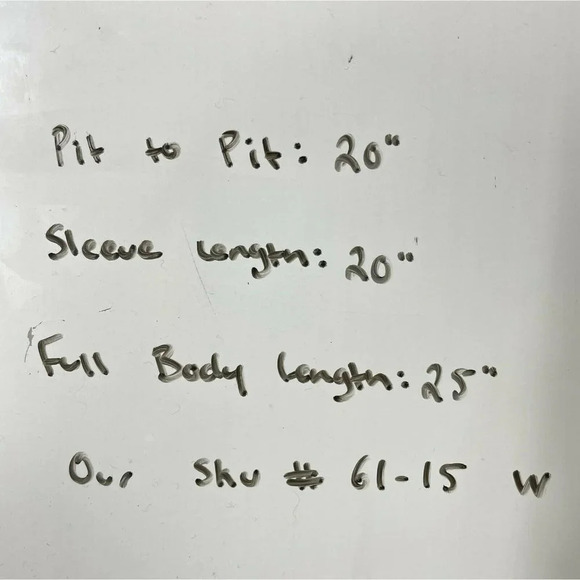 Pit to Pit: 20"
Sleeve Length: 20"
Full Body Length: 25"
Our Sku # 61-15 W